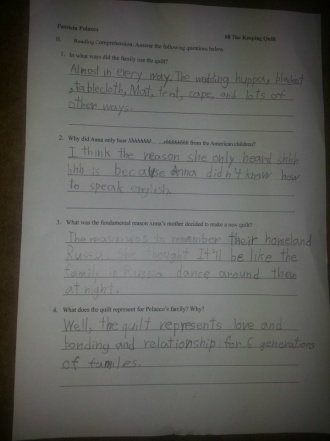 Patricia Polacco #8 The Keeping Quilt
II. Reading Comprehension: Answer the following questions below.
1. In what ways did the family use the quilt?
Almost in every way. The wedding huppa, blanket
, tablecloth, Mat, tent, cape, and lots of
other ways.
2. Why did Anna only hear shhhhhhh……shhhhhhhh from the American children?
I think the reason she only heard shhh
hhh is because Anna didn't know how
to speak english.
3. What was the fundamental reason Anna's mother decided to make a new quilt?
The reason was to remember their homeland
Russia. She thought It'll be like the
family in Russia dance around them
at night.
4. What does the quilt represent for Polacco's family? Why?
Well, the quilt represents love and
bonding and relationship for 6 generations
of familes.